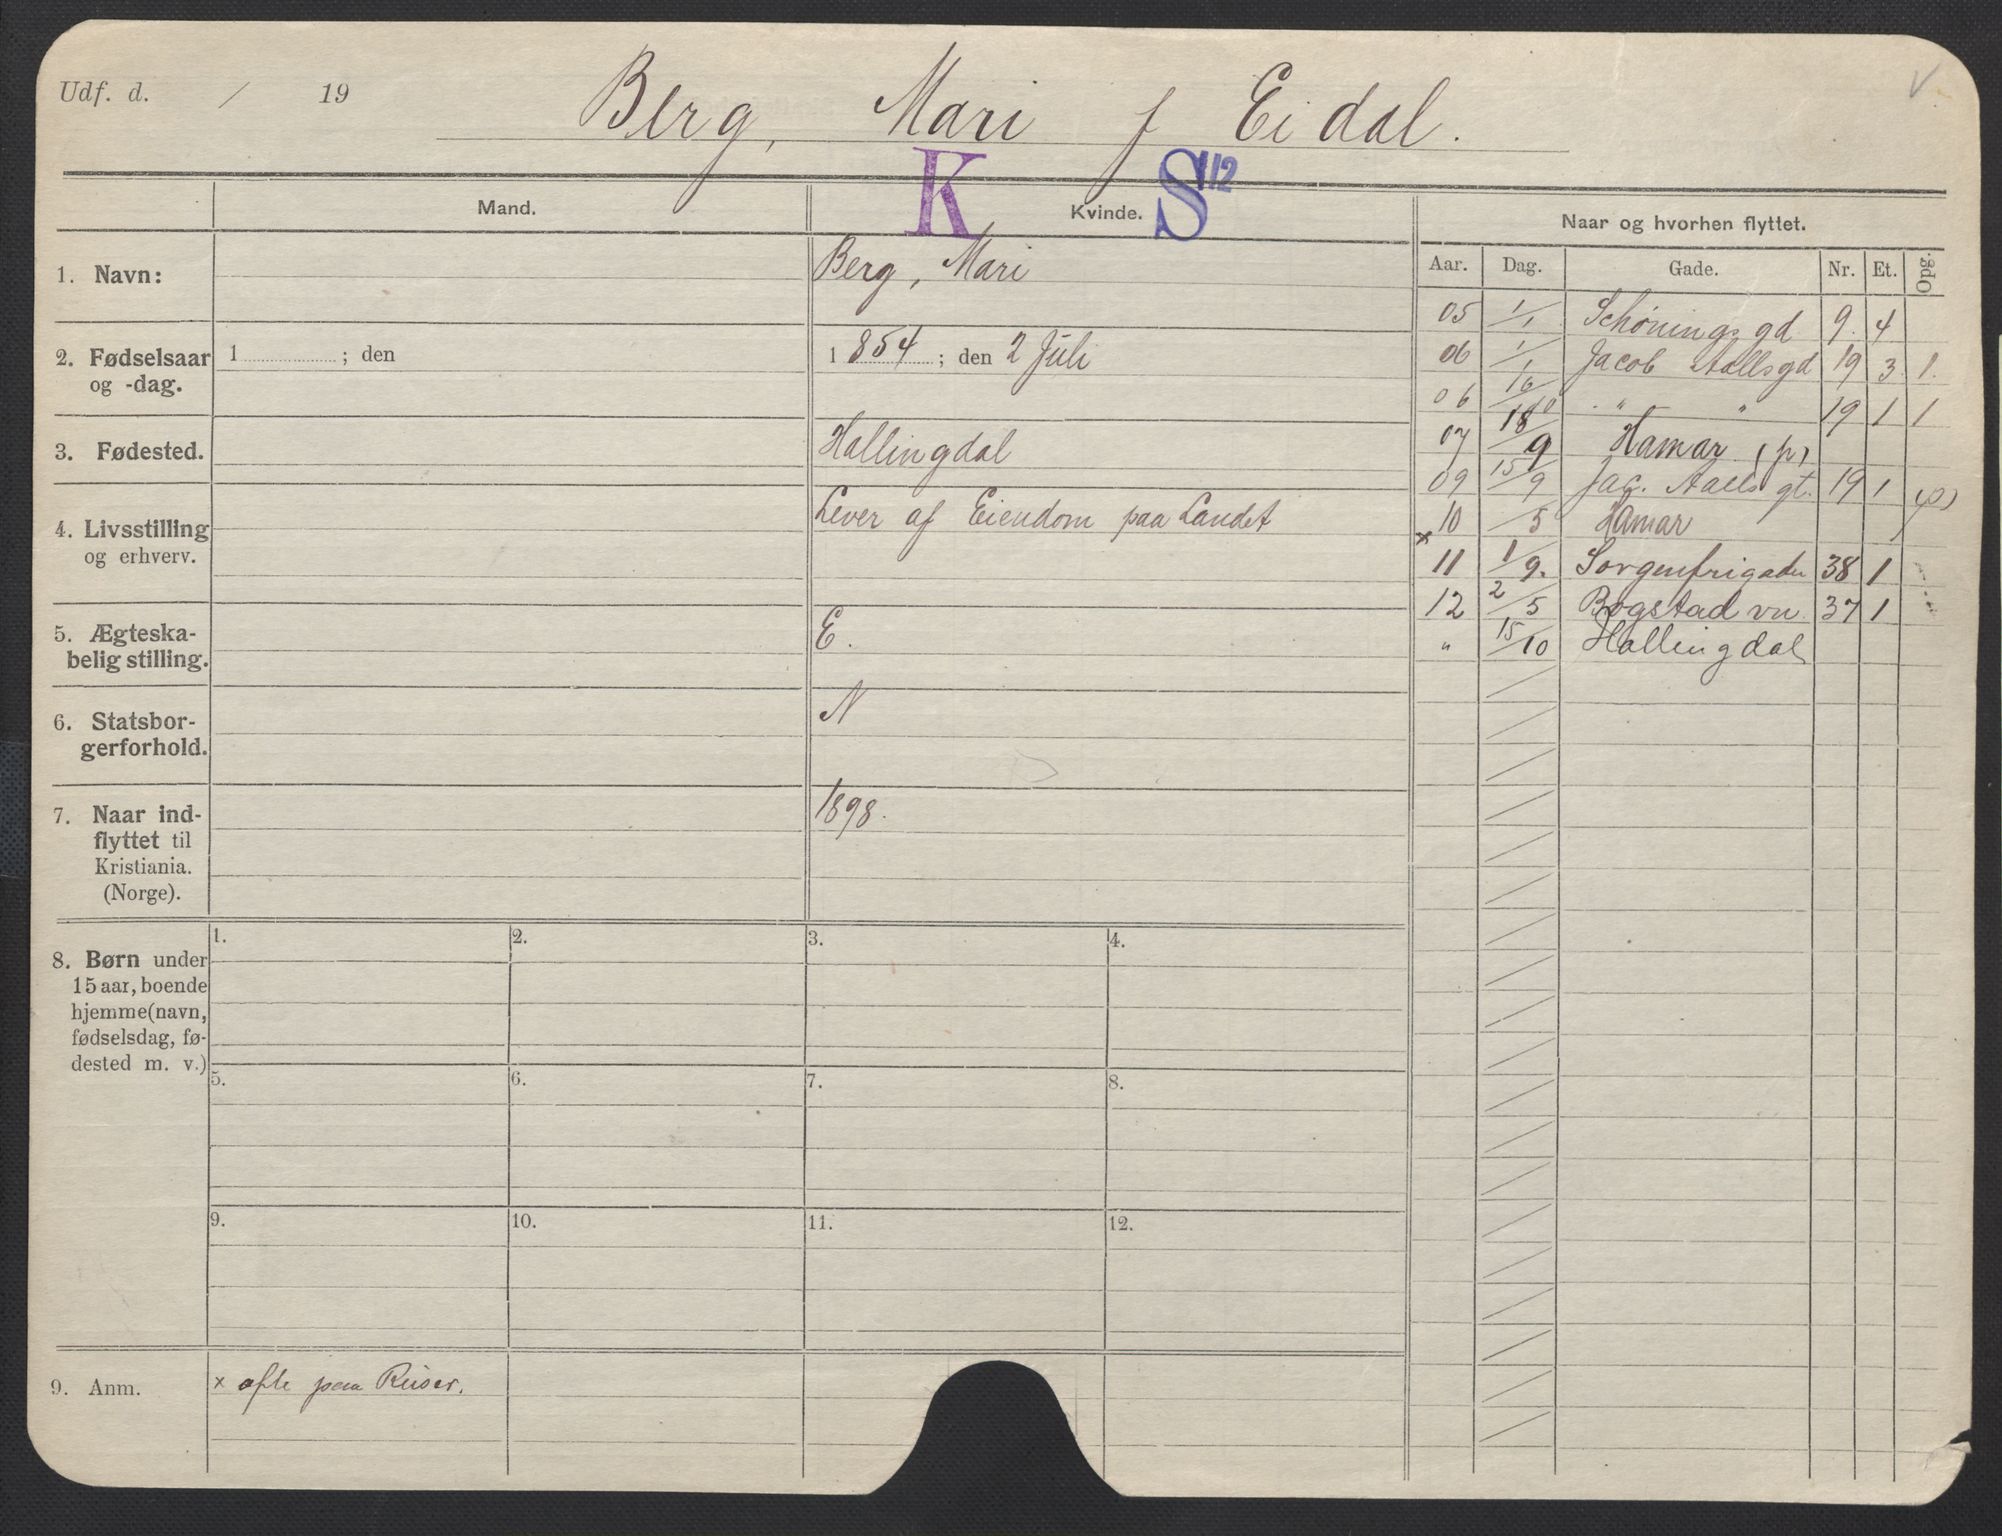 Udf. d. / 19
Berg, Mari f Eidal.
V
K S 112
Mand.
Kvinde.
Naar og hvorhen flyttet.
Aar. Dag. Gade. Nr. Et. Opg.
1. Navn:
Berg, Mari
2. Fødselsaar
og -dag.
1 ; den
1854; den 2 Juli
3. Fødested.
Hallingdal
4. Livsstilling
og erhverv.
Lever af Eiendom paa Landet
5. Ægteska-
belig stilling.
E.
6. Statsbor-
gerforhold.
N
7. Naar ind-
flyttet til
Kristiania.
(Norge).
1898.
05 1/1 Schønings gd 9. 4
06 1/1 Jacob Aallsgd 19 3 1.
06 16/10 " " 19 1 1
07 18/9 Hamar (p)
09 15/9 Jac. Aalls gt. 19 1 (p)
x 10 /5 Hamar
11 1/9. Sorgenfrigaden 38 1
12 2/5 Bogstad vn 37 1
" 15/10 Hallingdal
8. Børn under
15 aar, boende
hjemme (navn,
fødselsdag, fø-
dested m. v.)
1. 2. 3. 4.
5. 6. 7. 8.
9. 10. 11. 12.
9. Anm.
x ofte paa Reiser.